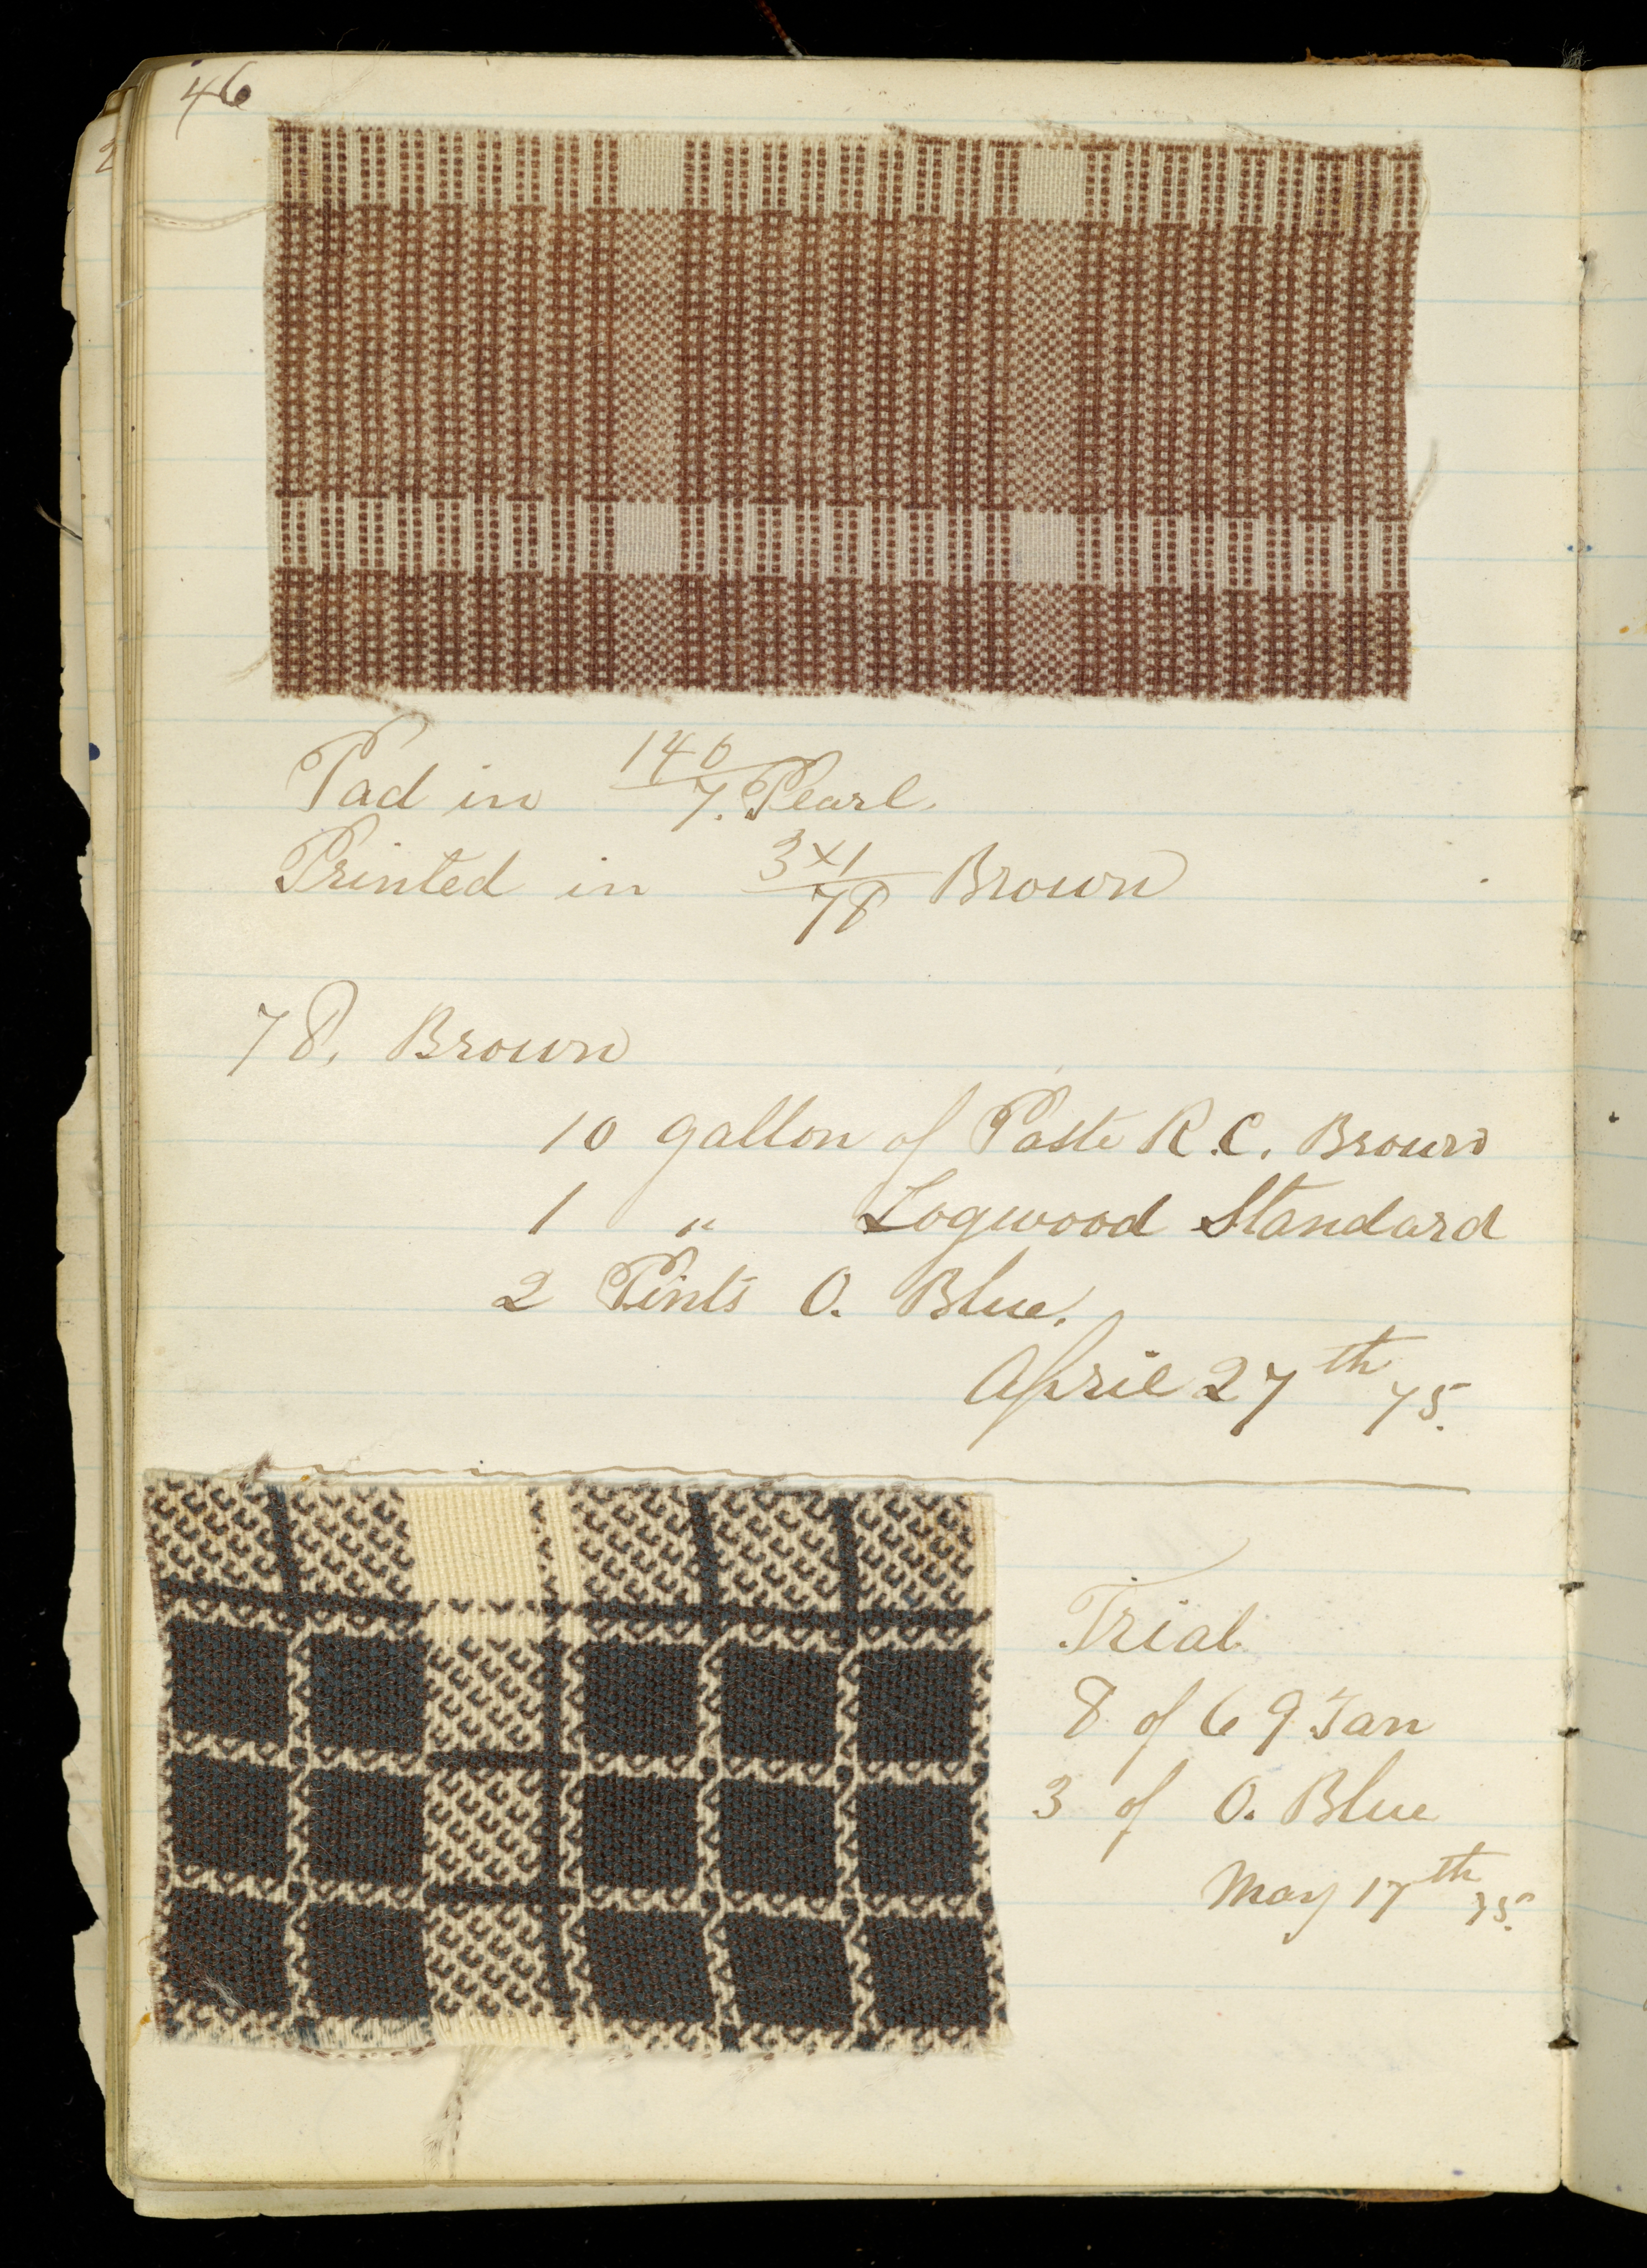 46
2
Pad in 140/7. Pearl.
Printed in 3x1/78 Brown
78. Brown
10 gallon of Paste R.C. Brown
1 " Logwood Standard
2 Pints O. Blue.
April 27th 75.
Trial
8 of 69 Tan
3 of O. Blue
May 17th 75.